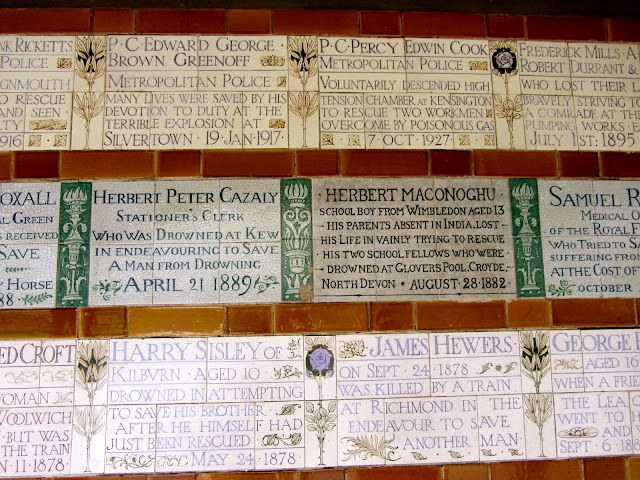 NK RICKETTS
POLICE
IGNMOUTH
TO RESCUE
AND SEEN
1916
P·C·EDWARD GEORGE
BROWN GREENOFF
METROPOLITAN POLICE
MANY LIVES WERE SAVED BY HIS
DEVOTION TO DUTY AT THE
TERRIBLE EXPLOSION AT
SILVERTOWN · 19 · JAN · 1917 ·
P·C·PERCY EDWIN COOK
METROPOLITAN POLICE
VOLUNTARILY DESCENDED HIGH
TENSION CHAMBER AT KENSINGTON
TO RESCUE TWO WORKMEN
OVERCOME BY POISONOUS GAS
7 OCT · 1927
FREDERICK MILLS · A
ROBERT DURRANT &
WHO LOST THEIR L
BRAVELY STRIVING T
A COMRADE AT THE
PUMPING WORKS
JULY 1ST 1895
OXALL
AL GREEN
S RECEIVED
SAVE
Y HORSE
88
HERBERT PETER CAZALY
STATIONER'S CLERK
WHO WAS DROWNED AT KEW
IN ENDEAVOURING TO SAVE
A MAN FROM DROWNING
APRIL 21 1889
HERBERT MACONOGHU
SCHOOL BOY FROM WIMBLEDON AGED 13
HIS PARENTS ABSENT IN INDIA, LOST
HIS LIFE IN VAINLY TRYING TO RESCUE
HIS TWO SCHOOL FELLOWS WHO WERE
DROWNED AT GLOVERS POOL, CROYDE,
NORTH DEVON · AUGUST 28 · 1882 ·
SAMUEL R
MEDICAL O
OF THE ROYAL F
WHO TRIED TO S
SUFFERING FROM
AT THE COST OF
OCTOBER
ED CROFT
WOMAN
WOOLWICH
BUT WAS
THE TRAIN
N · 11 · 1878 ·
HARRY SISLEY OF
KILBVRN · AGED 10
DROWNED IN ATTEMPTING
TO SAVE HIS BROTHER
AFTER HE HIMSELF HAD
JUST BEEN RESCUED
MAY 24 1878
JAMES HEWERS
ON SEPT · 24 · 1878
WAS KILLED BY A TRAIN
AT RICHMOND IN THE
ENDEAVOUR TO SAVE
ANOTHER MAN
GEORGE
AGED 16
WHEN A FI
THE LEA
WENT TO
AND
SEPT · 6 · 18